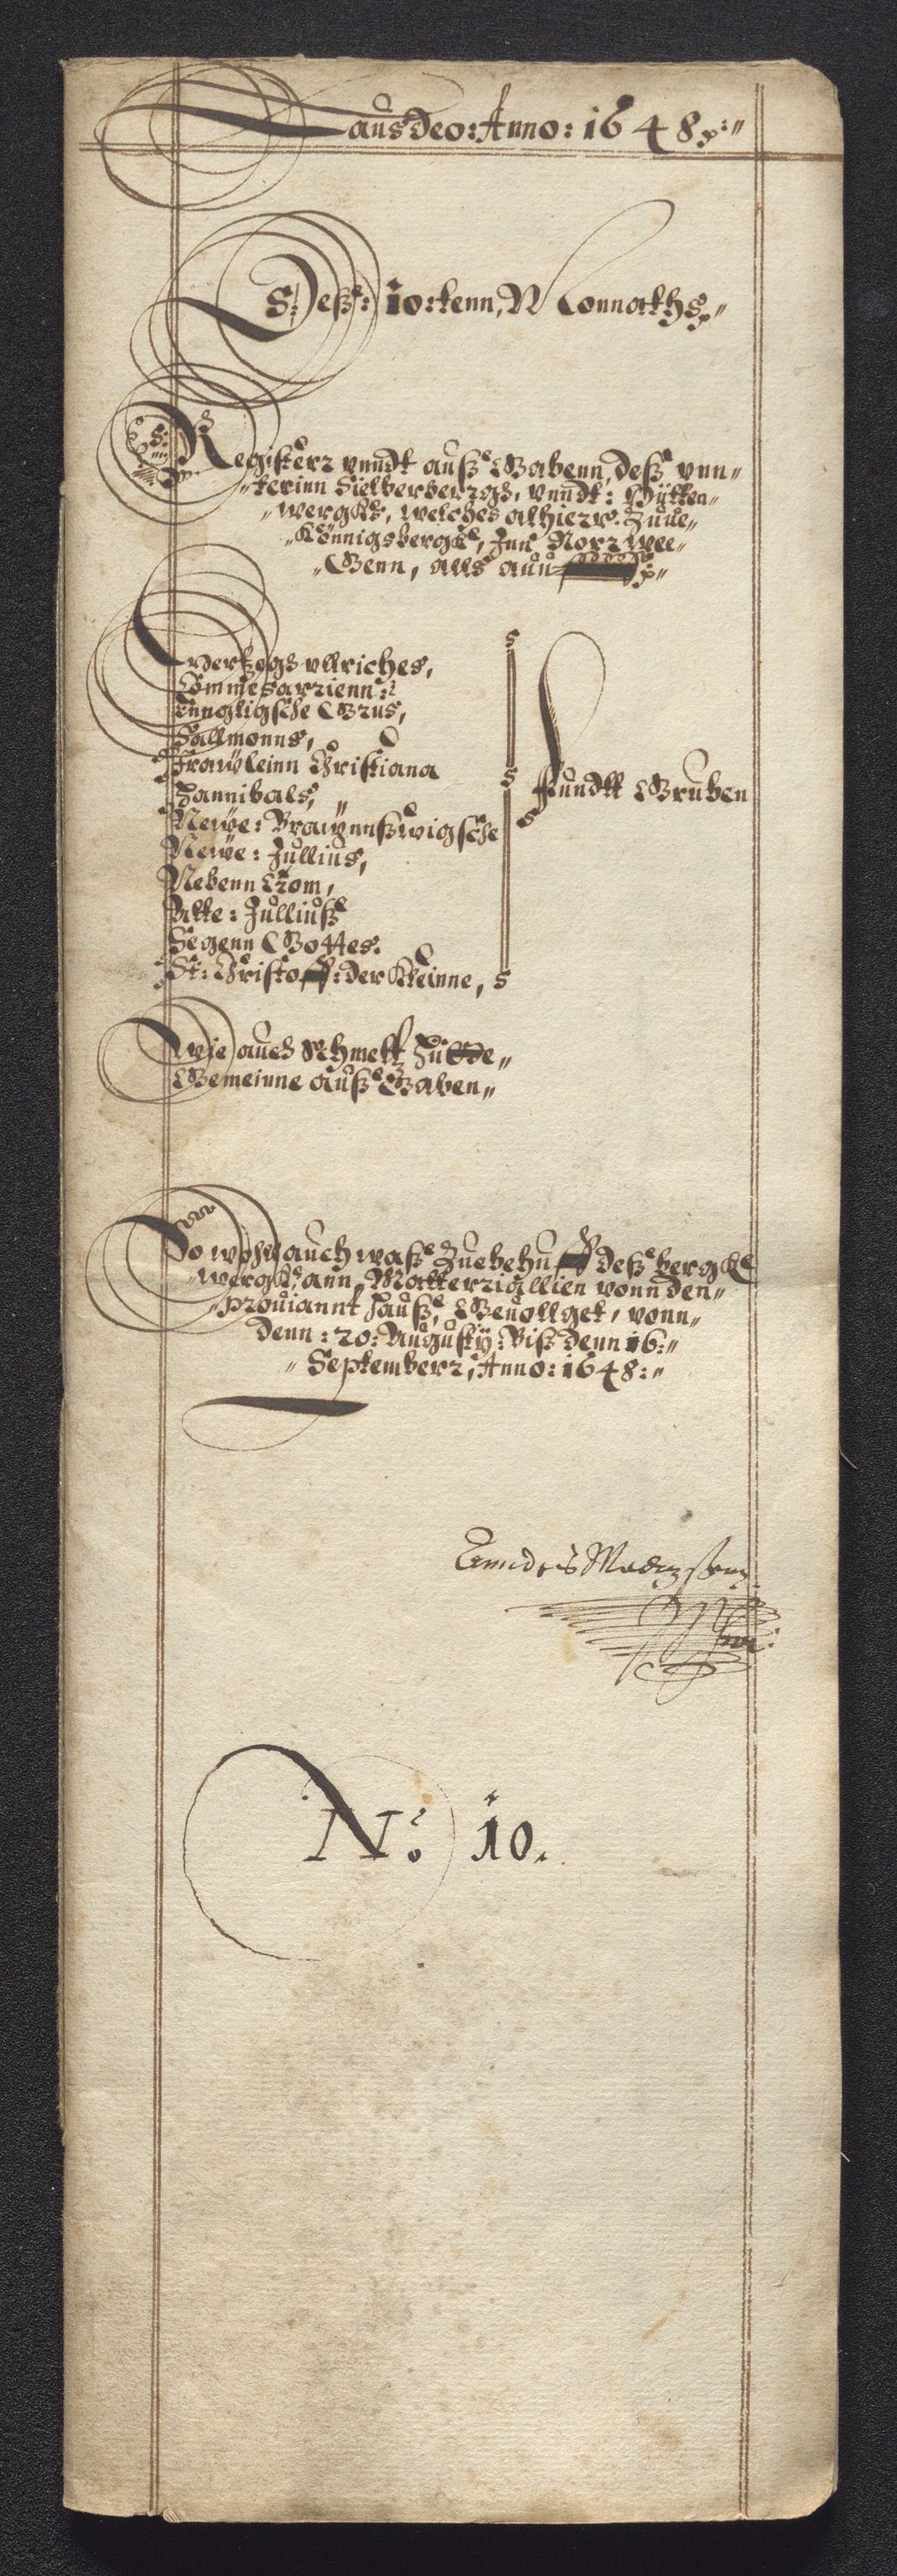 Laus deo: Anno: 1648
Deß: 10: tenn, Monnaths
Registerr vnndt außgabenn, deß vnn=
terinn Sielberbergs, vnndt: Hütten=
wergks, welches alhierr Zuue=
Königsbergk, Jnn Norr wee=
Genn, alls auu
Herzogs vllriches,
Commiesarrienn:
Enngligsche Grus,
Sallmonns,
Frawleinn Christiana
Hannibals,
Newe: Brawnnßwigsche
Newe: Jullius,
Nebenn Crom,
Alte: Julliuß
Segenn Gottes.
St: Christoff: der Kleinne,
Fundtt Gruben
Wie auch Schmeltz Hütte
Gemeinne auß Gaben
So wohl auch waß Zuebehuff deß bergk
wergks, ann Matterriallien vonn den
prouiannt Hauß, Geuollget, vonn
denn: 20: Augusty: Biß denn 16:
Septemberr, Anno: 1648:
No: 10.